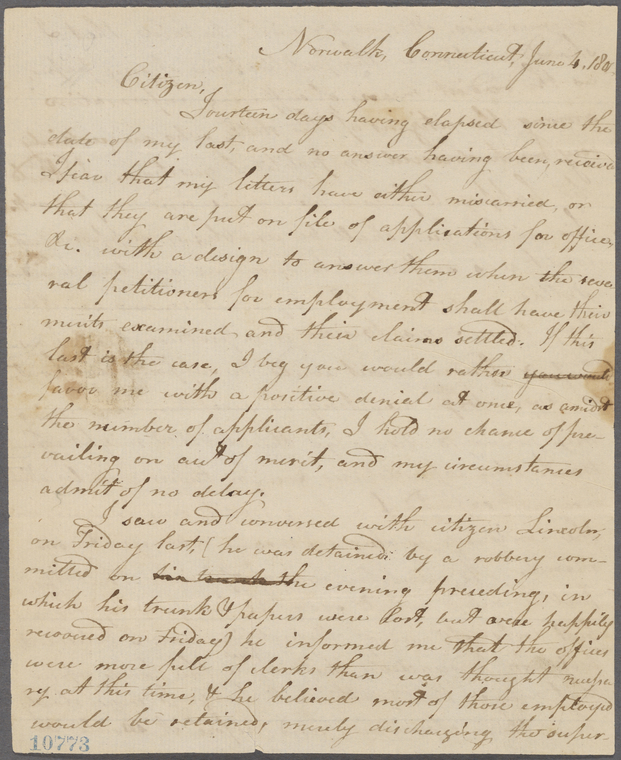 Norwalk, Connecticut, June 4, 180
Citizen,
Fourteen days having elapsed since the
date of my last, and no answer having been receive
I fear that my letters have either miscarried, or
that they are put on file of applications for office,
&c. with a design to answer them when the seve
ral petitioners for employment shall have their
merits examined and their claims settled. If this
last is the case, I beg you would rather you would
favor me with a positive denial at once, as amidst
the number of applicants, I hold no chance of pre-
vailing on acct of merit, and my circumstances
admit of no delay.
I saw and conversed with citizen Lincoln,
on Friday last, (he was detained by a robbery com-
mitted on the evening preceding, in
which his trunk & papers were lost, but were happily
recovered on Friday) he informed me that the offices
were more full of clerks than was thought necessa
ry at this time, & he believed most of those employed
would be retained, merely discharging the super-
10773